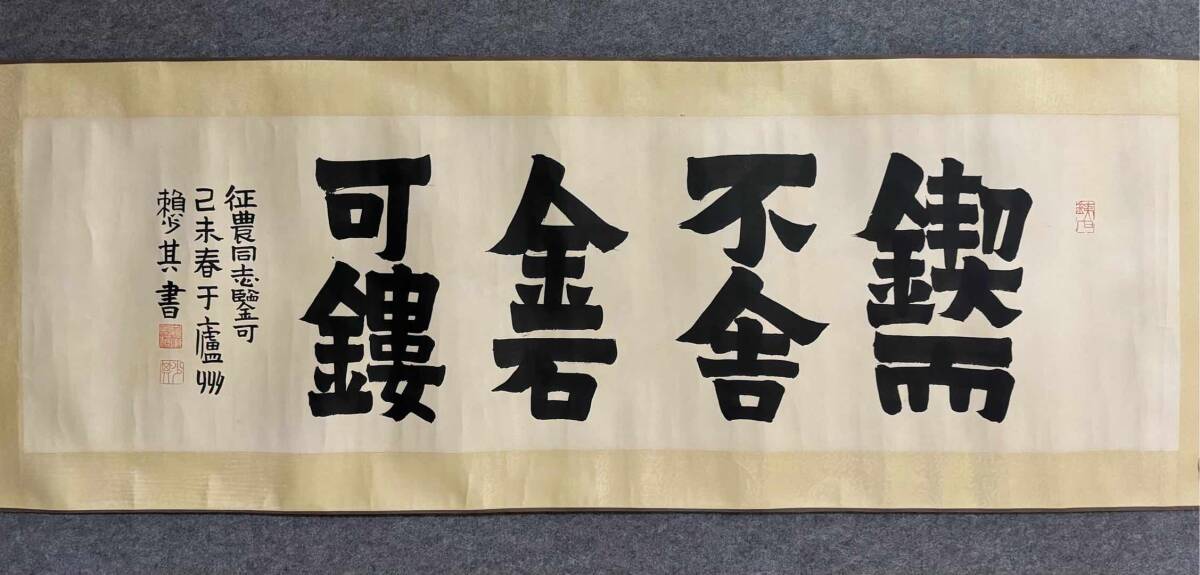 鍥而
不舍
金石
可鏤
征農同志鑒可
己未春于廬州
賴少其書